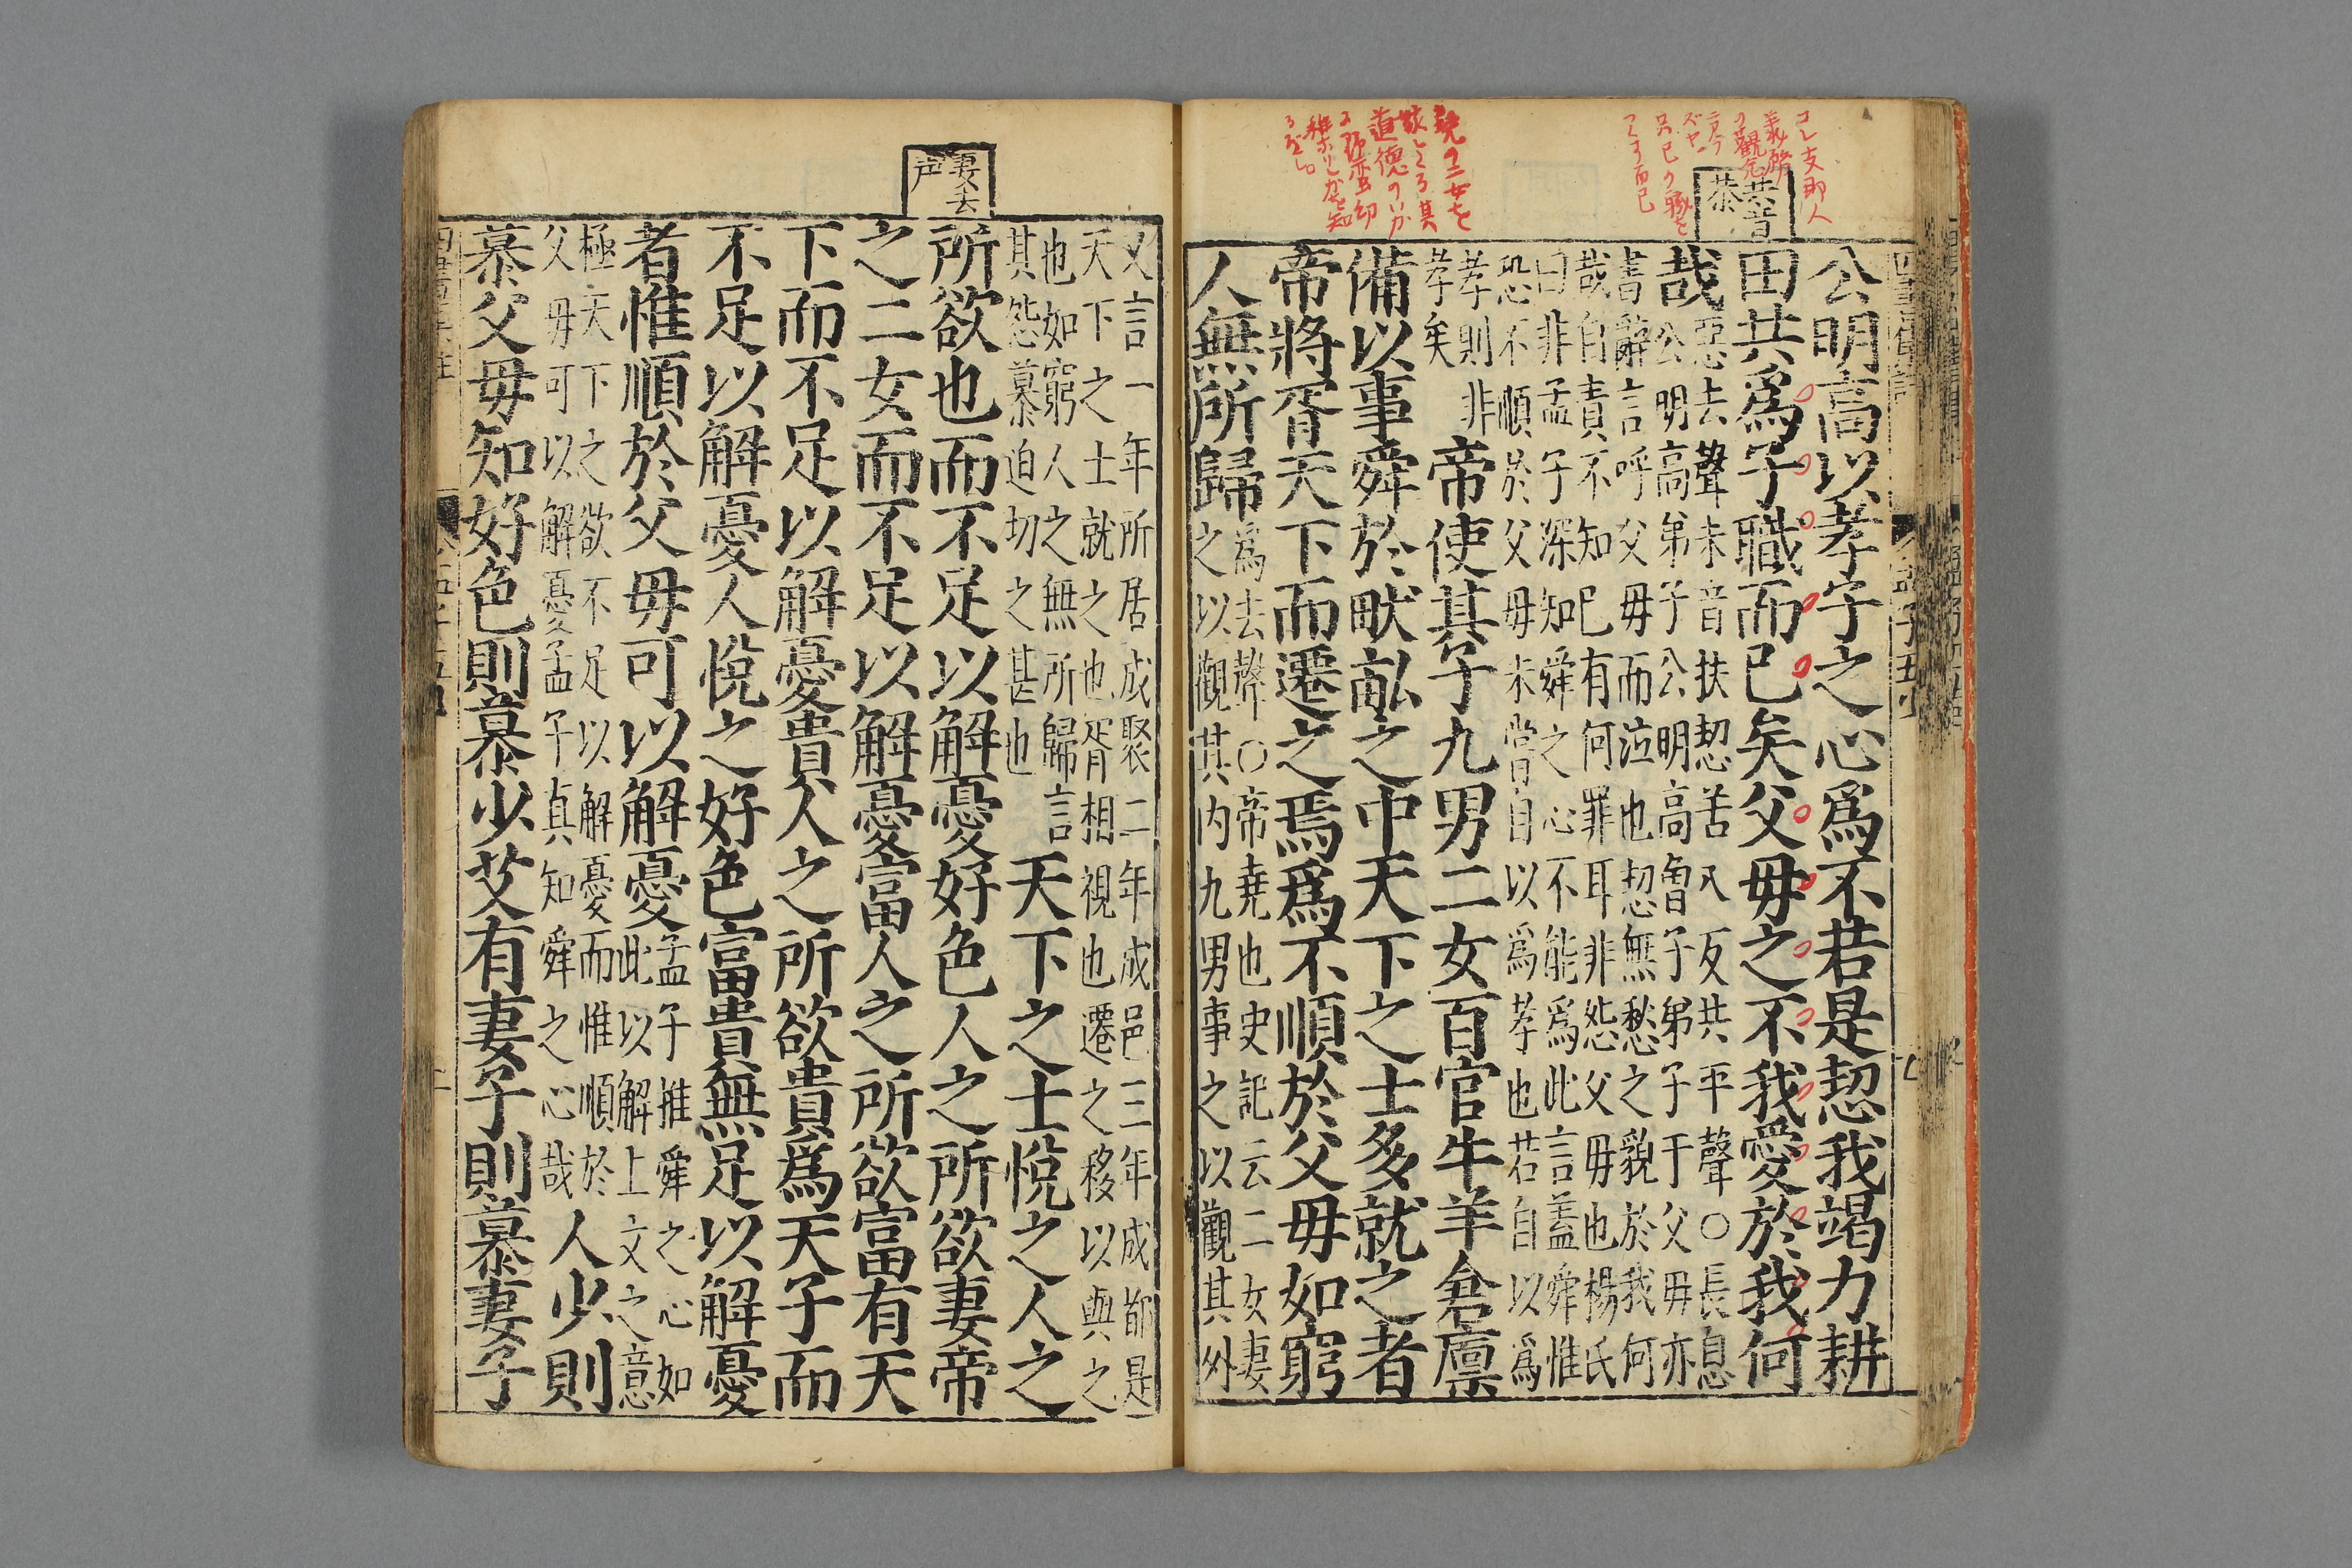 共音
恭
公明高以孝子之心爲不若是恝我竭力耕
田共爲子職而已矣父毋之不我愛於我何
哉
惡去聲未音扶恝苦八反共平聲○長息
公明高弟子公明高曽子弟子于父毋亦
書辭言呼父毋而泣也恝無愁之貌於我何
哉自責不知已有何罪耳非怨父毋也楊氏
曰非孟子深知舜之心不能爲此言蓋舜惟
恐不順於父毋未嘗自以爲孝也若自以爲
孝則非
孝矣
帝使其子九男二女百官牛羊倉廪
備以事舜於畎畝之中天下之士多就之者
帝將胥天下而遷之焉爲不順於父毋如窮
人無所歸
爲去聲○帝堯也史記云二女妻
之以觀其内九男事之以觀其外
妻去
声
又言一年所居成聚二年成邑三年成都是
天下之士就之也胥相視也遷之移以與之
也如窮人之無所歸言
其怨慕迫切之甚也
天下之士悅之人之
所欲也而不足以解憂好色人之所欲妻帝
之二女而不足以解憂富人之所欲富有天
下而不足以解憂貴人之所欲貴爲天子而
不足以解憂人悅之好色富貴無足以解憂
者惟順於父毋可以解憂
孟子推舜之心如
此以解上文之意
極天下之欲不足以解憂而惟順於
父毋可以解憂孟子真知舜之心哉
人少則
慕父毋知好色則慕少艾有妻子則慕妻子